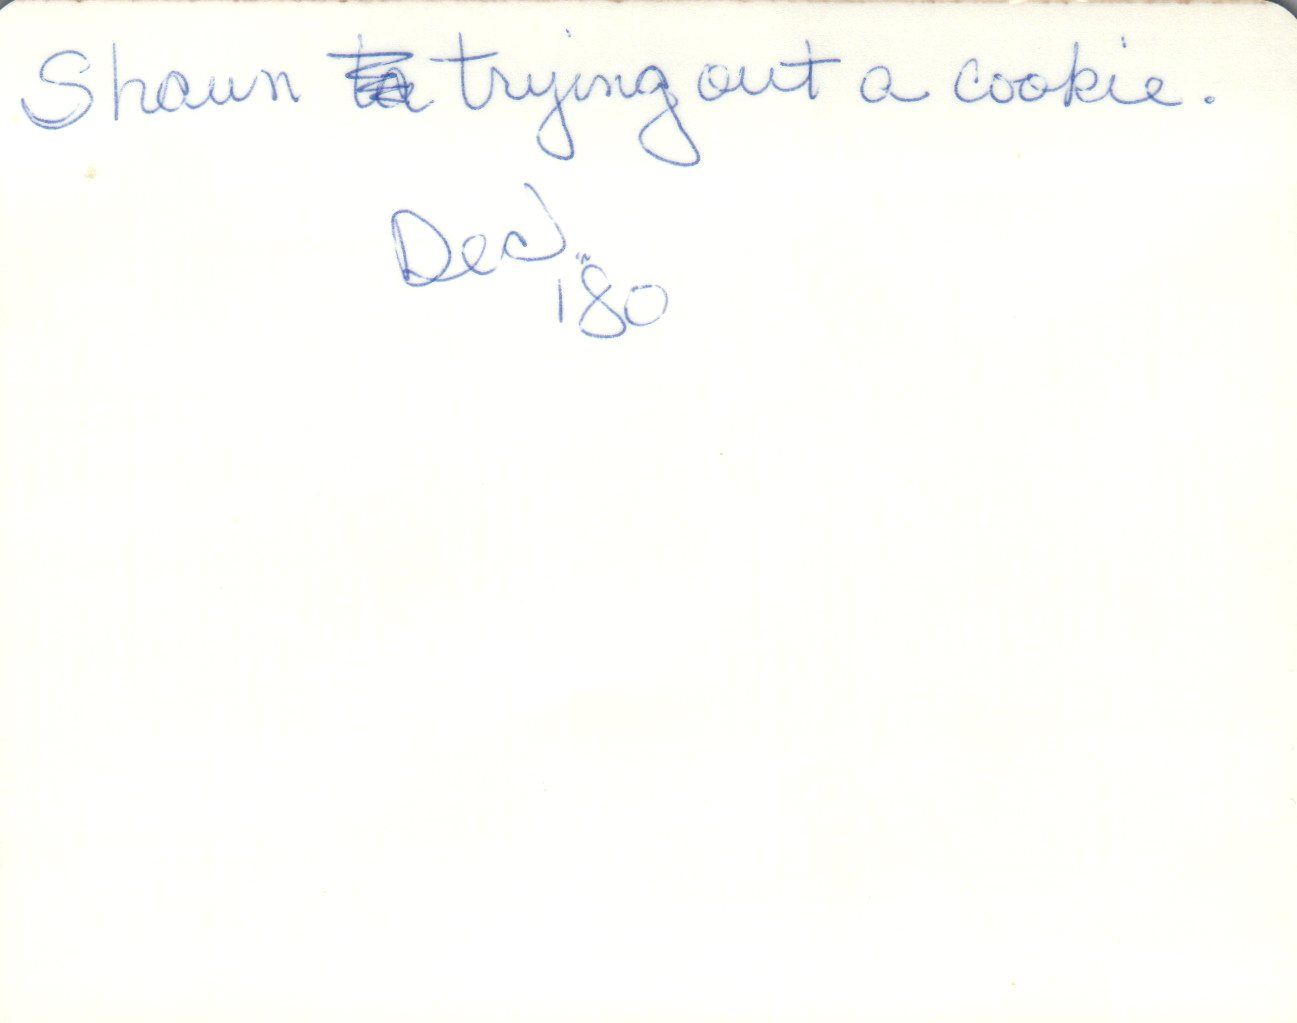 Shaun trying out a cookie.
Dec.
'80